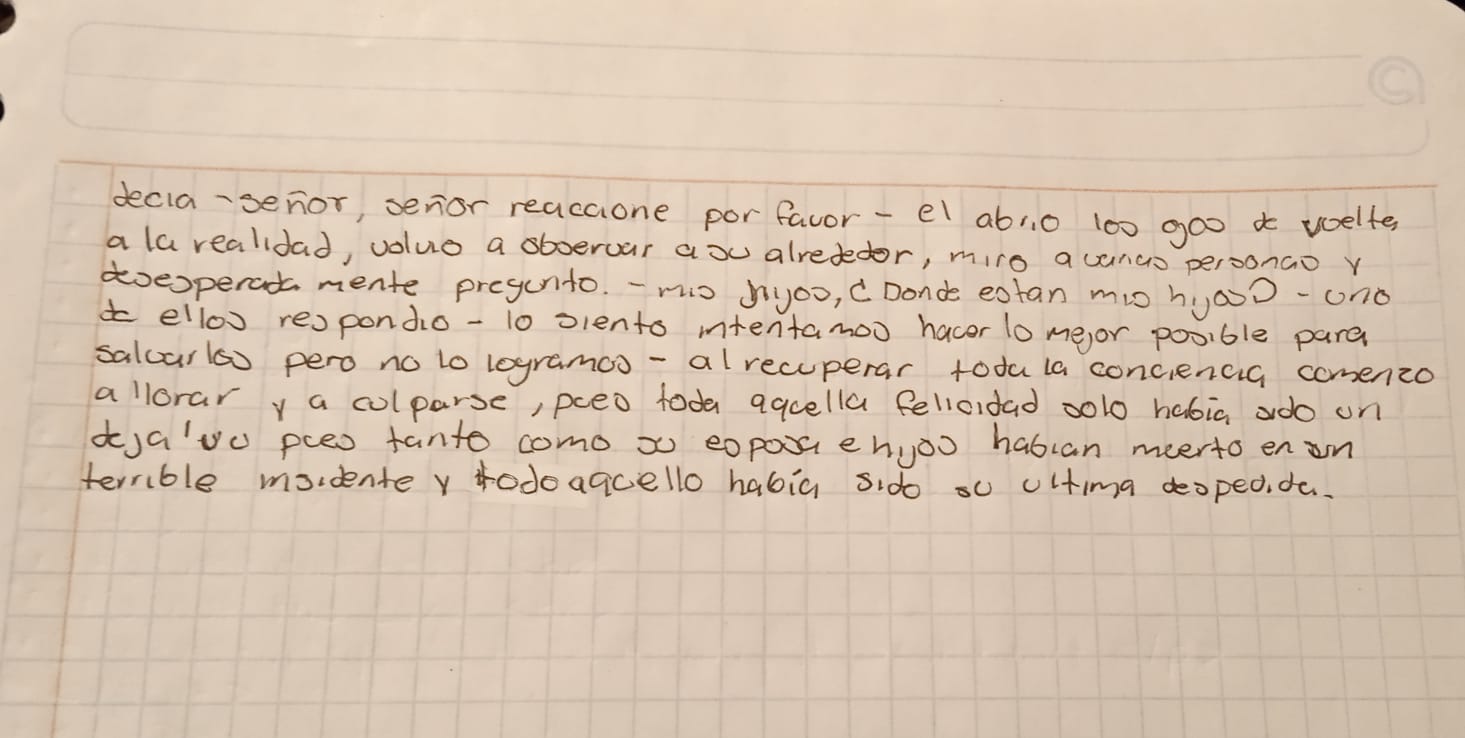 decia -señor, señor reaccione por favor - el abrio los ojos de vuelta
a la realidad, volvio a observar a su alrededor, miro a varias personas y
desesperada mente pregunto. - mis hijos, ¿Donde estan mis hijos? - uno
de ellos respondio - lo siento intentamos hacer lo mejor posible para
salvarlos pero no lo logramos - al recuperar toda la conciencia comenzo
a llorar y a culparse, pues toda aquella felicidad solo había sido un
deja'vu pues tanto como su esposa e hijos habian muerto en un
terrible insidente y todo aquello había sido su ultima despedida.